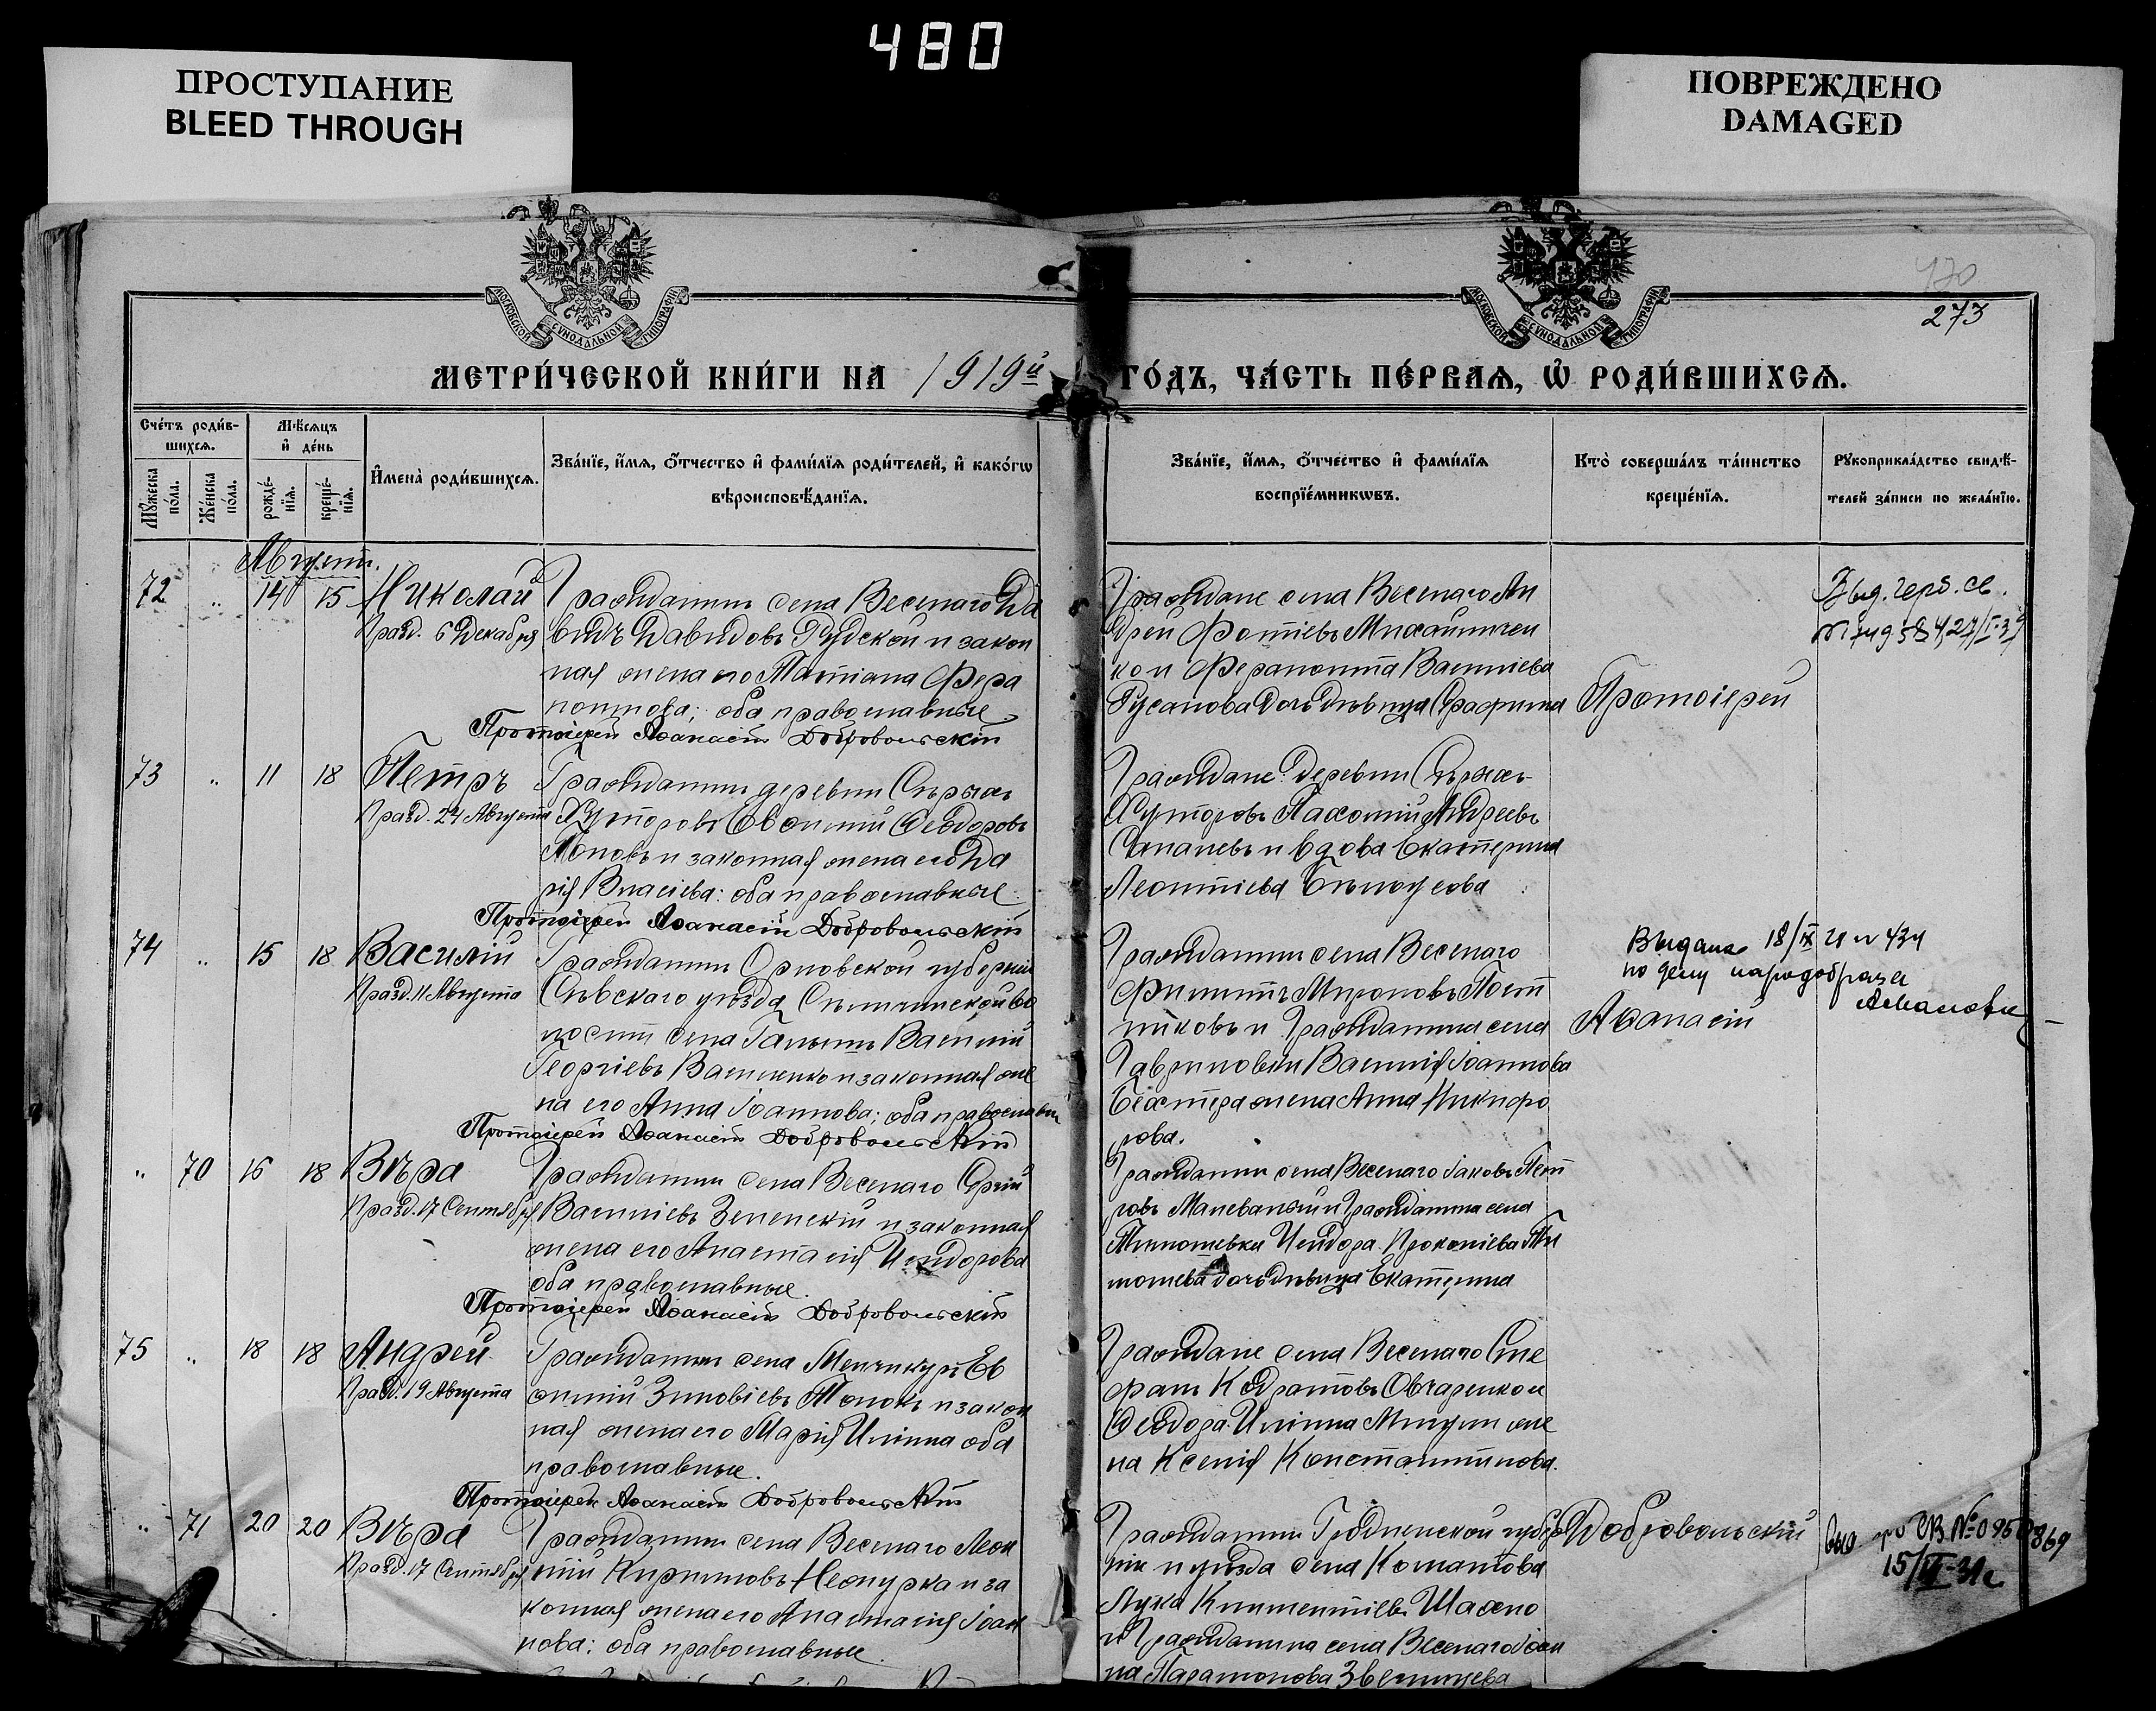 480
ПРОСТУПАНИЕ
BLEED THROUGH
ПОВРЕЖДЕНО
DAMAGED
МОСКОВСКОЙ СѴНОДАЛЬНОЙ ТИПОГРАФІИ
МОСКОВСКОЙ СѴНОДАЛЬНОЙ ТИПОГРАФІИ
273
МЕТРИ́ЧЕСКОЙ КНИ́ГИ НА 1919й ГО́ДЪ, ЧА́СТЬ ПЕ́РВАЯ, Ѡ РОДИ́ВШИХСЯ.
Сче́тъ роди́в-
шихся.
Мѣсяцъ
и де́нь
Мужеска по́ла.
Же́нска по́ла.
рожде́-
нїя.
креще́-
нїя.
Имена̀ роди́вшихся.
Зва́нїе, и́мя, о́тчество и фами́лїя роди́телей, и како́гѡ
вѣроисповѣ́данїя.
Зва́нїе, и́мя, о́тчество и фами́лїя
воспрїе́мникѡвъ.
Кто̀ соверша́лъ та́инство
креще́нїя.
Рукоприкла́дство свидѣ́-
телей за́писи по жела́нїю.
Августъ.
72 „ 14 15 Николай
Празд. 6 Декабря
Гражданинъ села Веселаго Да
видъ Давидовъ Рудской и закон
ная жена его Татіана Фера
понтова; оба православные
Протоіерей Аѳанасій Добровольскій
Граждане села Веселаго Ан
дрей Фотіевъ Михайличен
ко и Ферапонта Василіева
Русанова дочь дѣвица Серафима
Протоіерей
73 „ 11 18 Петръ
Празд. 24 Августа
Гражданинъ деревни Сѣрыхъ
Хуторовъ Евѳимій Ѳеодоровъ
Поповъ и законная жена его Да
рія Власіева: оба православные.
Протоіерей Аѳанасій Добровольскій
Граждане деревни Сѣрыхъ
Хуторовъ Пахомій Андреевъ
и вдова Екатерина
Леонтіева Бѣлоусова
74 „ 15 18 Василій
Празд. 11 Августа
Гражданинъ Орловской губерніи
Сѣвскаго уѣзда во
лости села Василій
Георгіевъ Василенко и законная же
на его Анна Іоаннова; оба православн
Протоіерей Аѳанасій Добровольскій
Гражданинъ села Веселаго
Филиппъ Мироновъ Плот
никовъ и Гражданина села
Гавриловки Василія Іоаннова
жена Анна Никифо
рова.
Выдана 18/IX 21 N 434
по делу
Аѳанасій
„ 70 15 18 Вѣра
Празд. 17 Сентября
Гражданинъ села Веселаго Сергій
Василіевъ Зеленскій и законная
жена его Анастасія Исидорова
оба православные.
Протоіерей Аѳанасій Добровольскій
Гражданинъ села Веселаго Іаковъ Пет
ровъ Малеваный и Гражданина села
Тимошевки Исидора Прокопіева Ти
мошева дочь дѣвица Екатерина
75 „ 18 18 Андрей
Празд. 19 Августа
Гражданинъ села Менчикуръ Ев
ѳимій Зиновіевъ и закон
ная жена его Марія Иліина оба
православные.
Протоіерей Аѳанасій Добровольскій
Граждане села Веселаго Сте
фанъ Кодратовъ Овчаренко и
Ѳеодора Иліина же
на Ксенія Константинова.
„ 71 20 20 Вѣра
Празд. 17 Сентября
Гражданинъ села Веселаго Леон
тій Кирилловъ и за
конная жена его Анастасія Іоан
нова: оба православные.
Гражданинъ Гродненской губер
ніи и уѣзда села
Лука Климентіевъ Шахно
и Гражданина села Веселаго Іоан
на Парамонова
Добровольскій
15/II-31г.